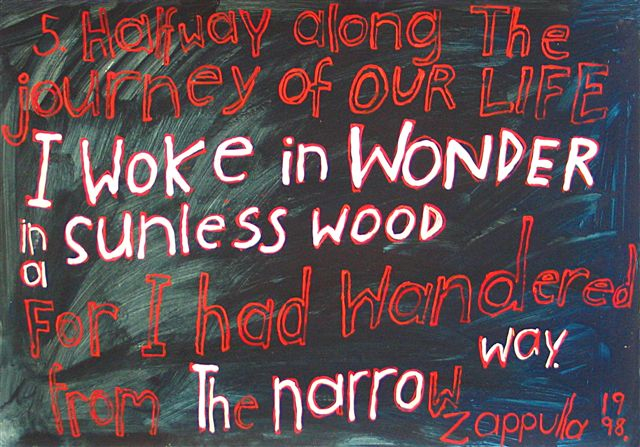 5. Halfway along The
journey of OUR LIFE
I WOKE in WONDER
in a sunless WOOD
For I had wandered
from The narrow way.
Zappulla 1998